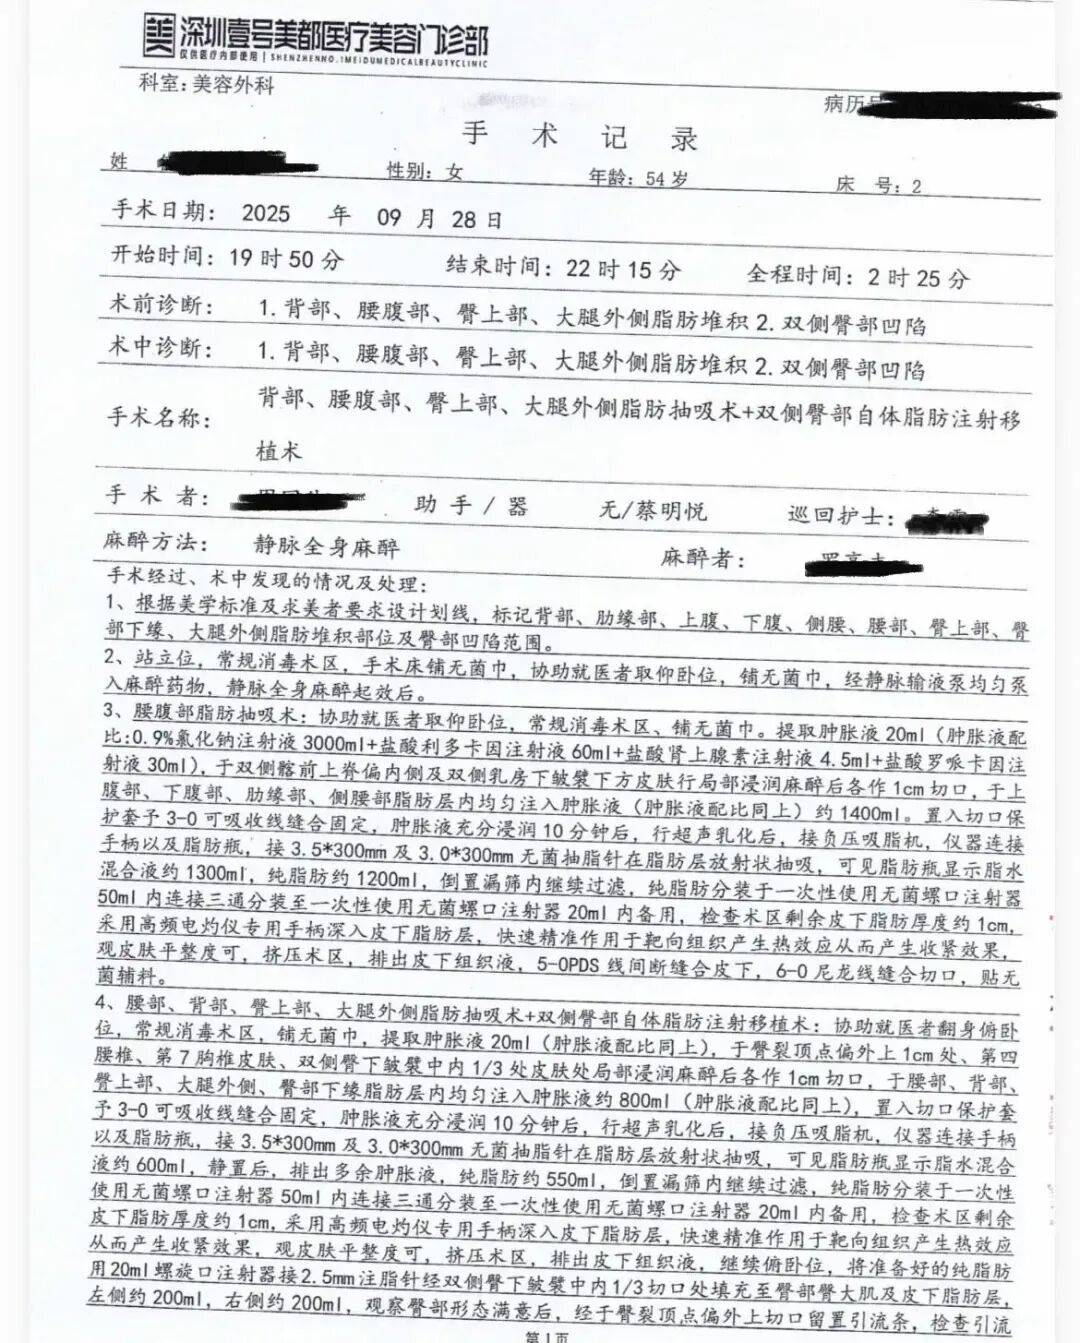 美 深圳壹号美都医疗美容门诊部
仅供医疗内部使用 | SHENZHENNO.1MEIDUMEDICALBEAUTYCLINIC
科室:美容外科
病历号
手 术 记 录
姓 性别:女 年龄:54岁 床 号:2
手术日期: 2025 年 09 月 28 日
开始时间:19时50分 结束时间:22时15分 全程时间:2时25分
术前诊断: 1.背部、腰腹部、臀上部、大腿外侧脂肪堆积2.双侧臀部凹陷
术中诊断: 1.背部、腰腹部、臀上部、大腿外侧脂肪堆积2.双侧臀部凹陷
手术名称: 背部、腰腹部、臀上部、大腿外侧脂肪抽吸术+双侧臀部自体脂肪注射移
植术
手 术 者: 助 手 / 器 无/蔡明悦 巡回护士:
麻醉方法: 静脉全身麻醉 麻醉者:
手术经过、术中发现的情况及处理:
1、根据美学标准及求美者要求设计划线,标记背部、肋缘部、上腹、下腹、侧腰、腰部、臀上部、臀
部下缘、大腿外侧脂肪堆积部位及臀部凹陷范围。
2、站立位,常规消毒术区,手术床铺无菌巾,协助就医者取仰卧位,铺无菌巾,经静脉输液泵均匀泵
入麻醉药物,静脉全身麻醉起效后。
3、腰腹部脂肪抽吸术:协助就医者取仰卧位,常规消毒术区、铺无菌巾。提取肿胀液20ml(肿胀液配
比:0.9%氯化钠注射液3000ml+盐酸利多卡因注射液60ml+盐酸肾上腺素注射液4.5ml+盐酸罗哌卡因注
射液30ml),于双侧髂前上脊偏内侧及双侧乳房下皱襞下方皮肤行局部浸润麻醉后各作1cm切口,于上
腹部、下腹部、肋缘部、侧腰部脂肪层内均匀注入肿胀液(肿胀液配比同上)约1400ml。置入切口保
护套予3-0可吸收线缝合固定,肿胀液充分浸润10分钟后,行超声乳化后,接负压吸脂机,仪器连接
手柄以及脂肪瓶,接3.5*300mm及3.0*300mm无菌抽脂针在脂肪层放射状抽吸,可见脂肪瓶显示脂水
混合液约1300ml,纯脂肪约1200ml,倒置漏筛内继续过滤,纯脂肪分装于一次性使用无菌螺口注射器
50ml内连接三通分装至一次性使用无菌螺口注射器20ml内备用,检查术区剩余皮下脂肪厚度约1cm,
采用高频电灼仪专用手柄深入皮下脂肪层,快速精准作用于靶向组织产生热效应从而产生收紧效果,
观皮肤平整度可,挤压术区,排出皮下组织液,5-0PDS线间断缝合皮下,6-0尼龙线缝合切口,贴无
菌辅料。
4、腰部、背部、臀上部、大腿外侧脂肪抽吸术+双侧臀部自体脂肪注射移植术:协助就医者翻身俯卧
位,常规消毒术区,铺无菌巾,提取肿胀液20ml(肿胀液配比同上),于臀裂顶点偏外上1cm处、第四
腰椎、第7胸椎皮肤、双侧臀下皱襞中内1/3处皮肤处局部浸润麻醉后各作1cm切口,于腰部、背部、
臀上部、大腿外侧、臀部下缘脂肪层内均匀注入肿胀液约800ml(肿胀液配比同上),置入切口保护套
予3-0可吸收线缝合固定,肿胀液充分浸润10分钟后,行超声乳化后,接负压吸脂机,仪器连接手柄
以及脂肪瓶,接3.5*300mm及3.0*300mm无菌抽脂针在脂肪层放射状抽吸,可见脂肪瓶显示脂水混合
液约600ml,静置后,排出多余肿胀液,纯脂肪约550ml,倒置漏筛内继续过滤,纯脂肪分装于一次性
使用无菌螺口注射器50ml内连接三通分装至一次性使用无菌螺口注射器20ml内备用,检查术区剩余
皮下脂肪厚度约1cm,采用高频电灼仪专用手柄深入皮下脂肪层,快速精准作用于靶向组织产生热效应
从而产生收紧效果,观皮肤平整度可,挤压术区,排出皮下组织液,继续俯卧位,将准备好的纯脂肪
用20ml螺旋口注射器接2.5mm注脂针经双侧臀下皱襞中内1/3切口处填充至臀部臀大肌及皮下脂肪层,
左侧约200ml,右侧约200ml,观察臀部形态满意后,经于臀裂顶点偏外上切口留置引流条,检查引流
第1页